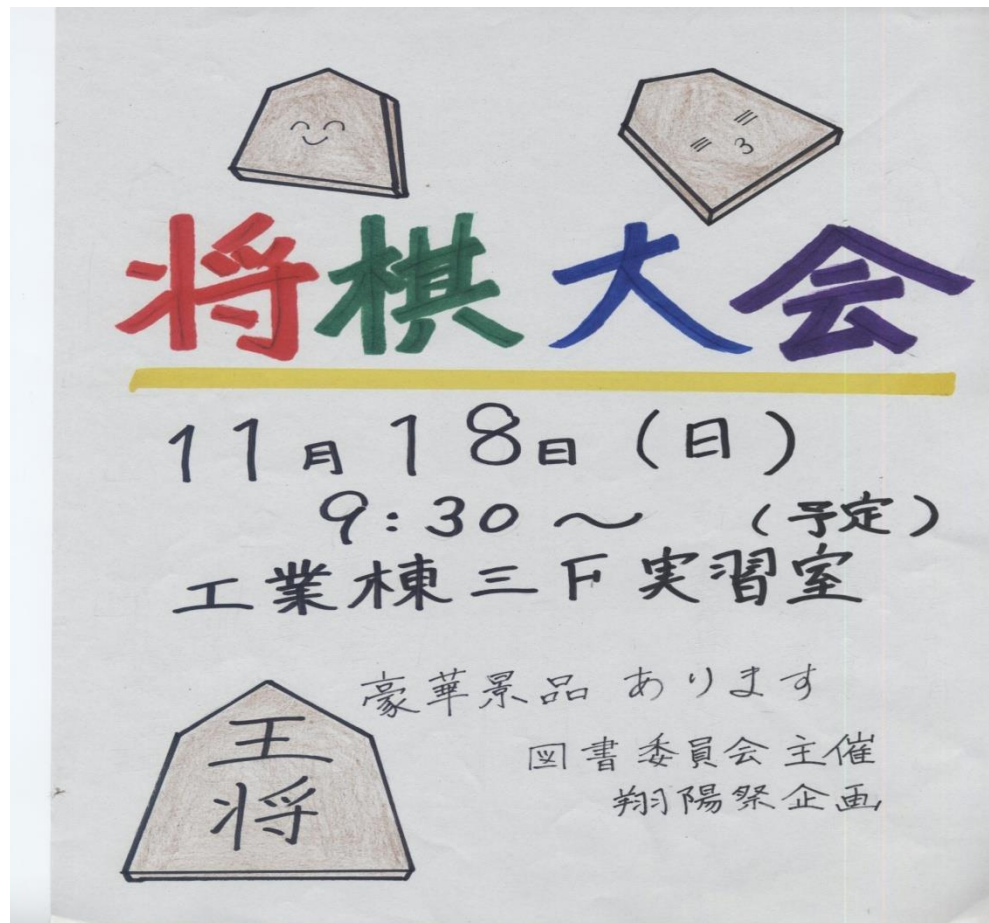 将棋大会
11月18日(日)
9:30～ (予定)
工業棟三F実習室
豪華景品あります
図書委員会主催
翔陽祭企画
王将